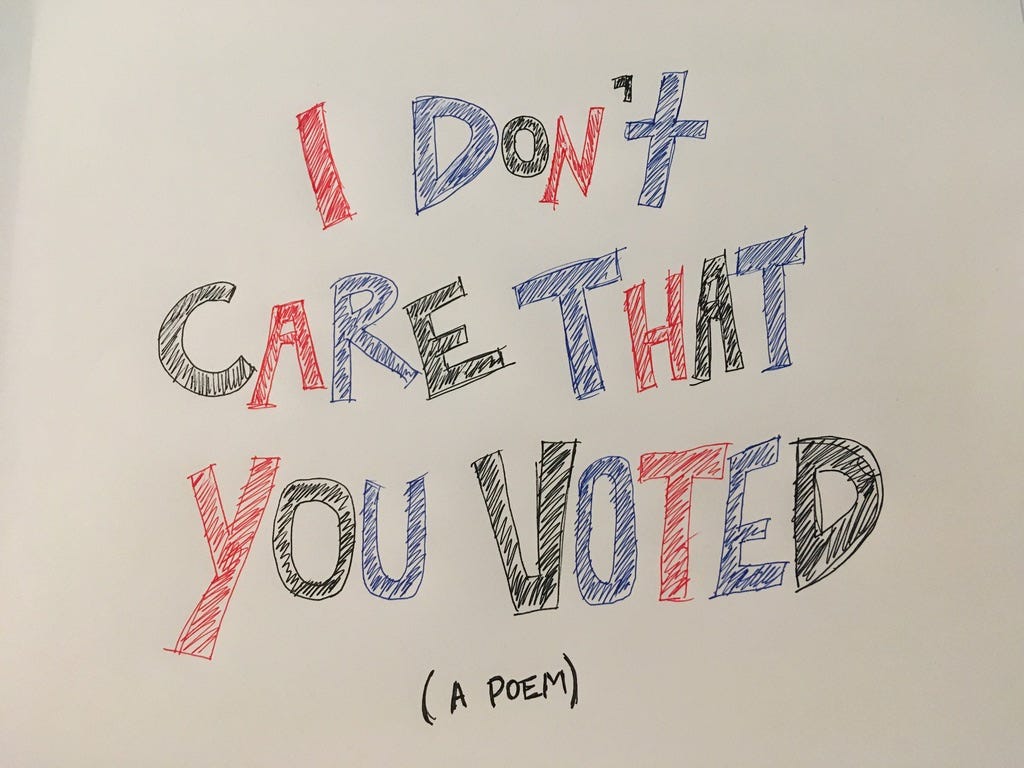 I DON't
CARE THAT
YOU VOTED
(A POEM)